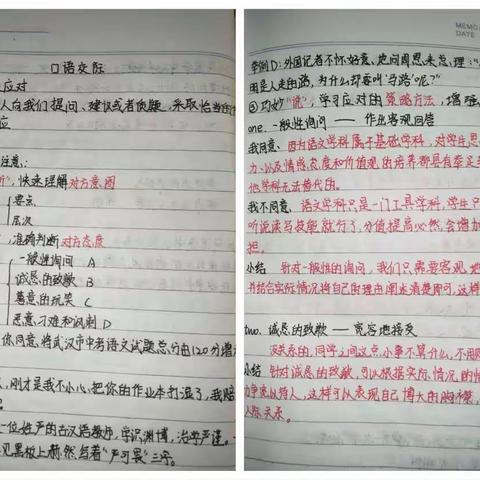 口语交际
应对
人向我们提问、建议或者质疑,采取恰当的
应
注意:
听",快速理解对方意图
要点
层次
,准确判断对方态度
一般性询问 A
诚恳的致歉 B
善意的玩笑 C
恶意刁难和讽刺 D
你同意,将武汉市中考语文试题总分由120分增
,刚才是我不小心,把你的作业本打湿了,我赔
一位姓严的古汉语教师,学识渊博,治学严谨。
见黑板上赫然写着"严可畏"三字。
MEMO
DATE
举例D:外国记者不怀好意地问周恩来总理:"
明是人走的路,为什么却要叫'马路'呢?"
③巧妙"说",学习应对的策略方法,增强
one. 一般性询问 —— 作出客观回答
我同意、因为语文学科属于基础学科,对学生思
力、以及情感、态度和价值观的培养都具有举足
他学科无法替代的。
我不同意、语文学科只是一门工具学科,学生只
听说读写技能就行了,分值提高必然会增加
担。
小结 针对一般性的询问,我们只需要客观地
并结合实际情况将自己的理由阐述清楚即可,这样
two. 诚恳的致歉 —— 宽容地接受
没关系的,同学之间这点小事不算什么,不用
小结 针对诚恳的致歉,可以根据实际情况的情
力争宽以待人,这样可以表现自己博大的胸襟,
人际关系。